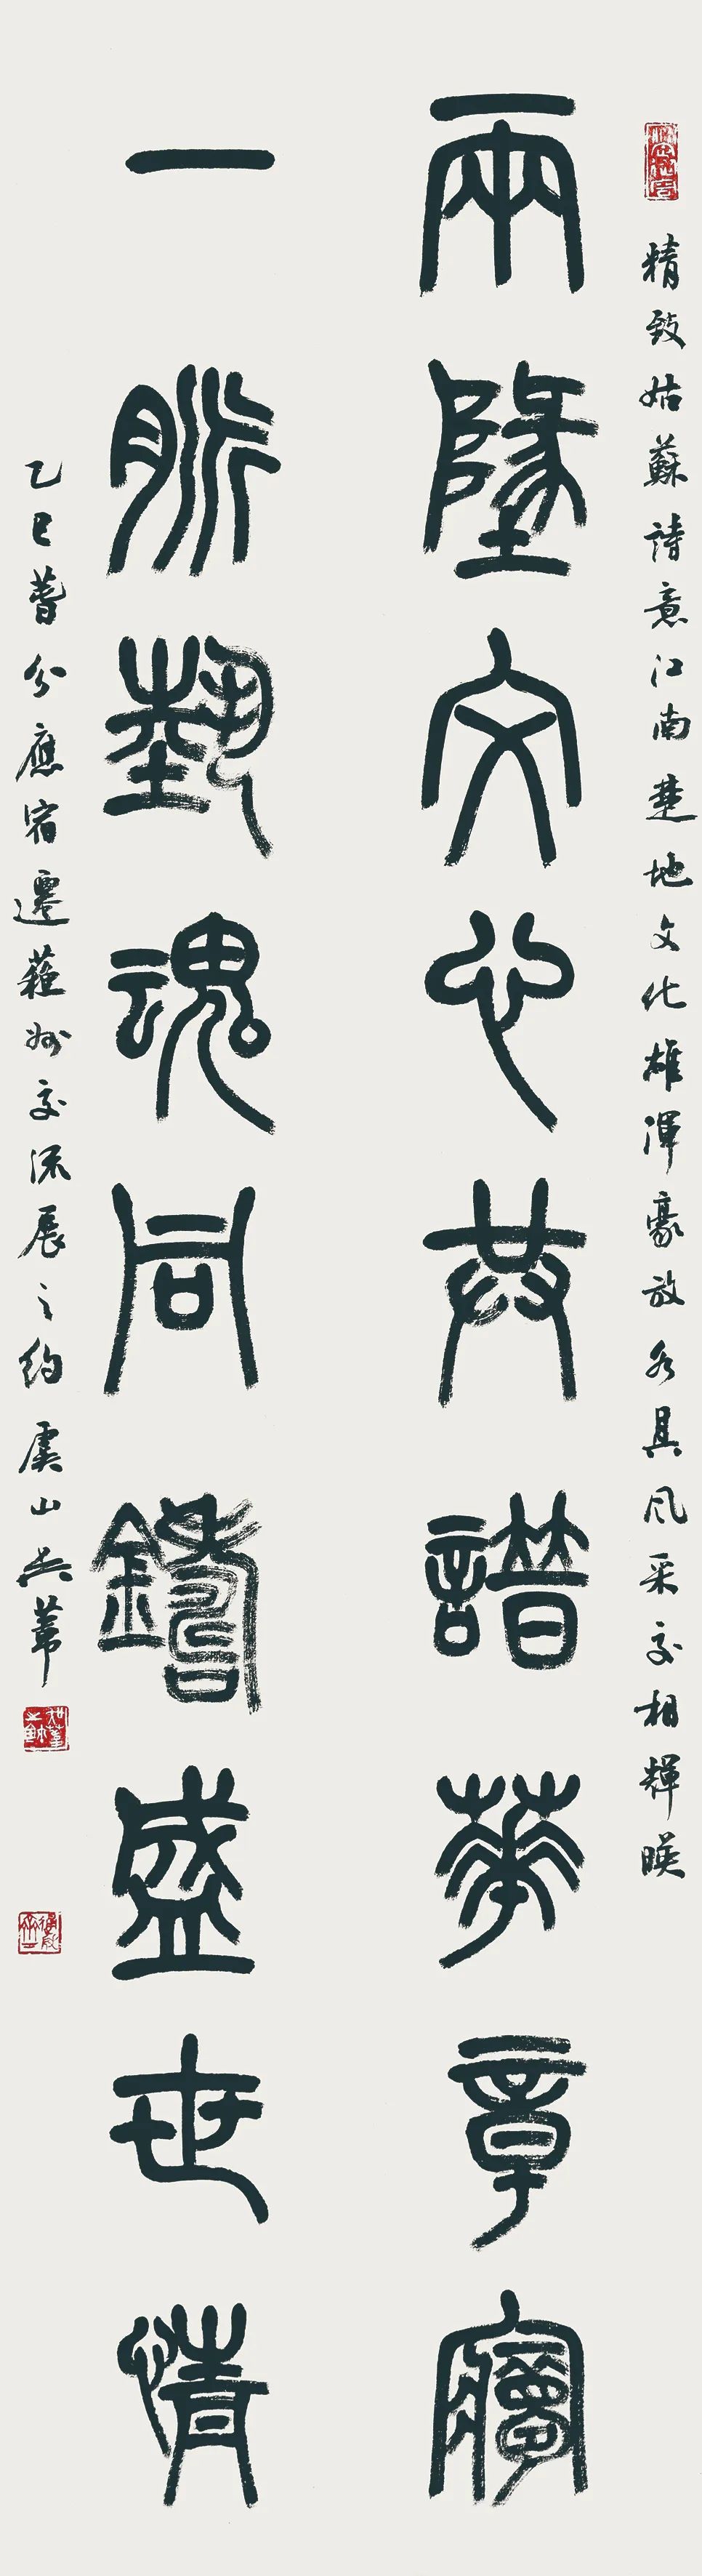 精致姑蘇詩意江南楚地文化雄渾豪放各具風采交相輝暎
兩地文心共譜華章夢
一脈藝魂同鑄盛世情
乙巳春分應宿遷蘇州交流展之約虞山吳葦